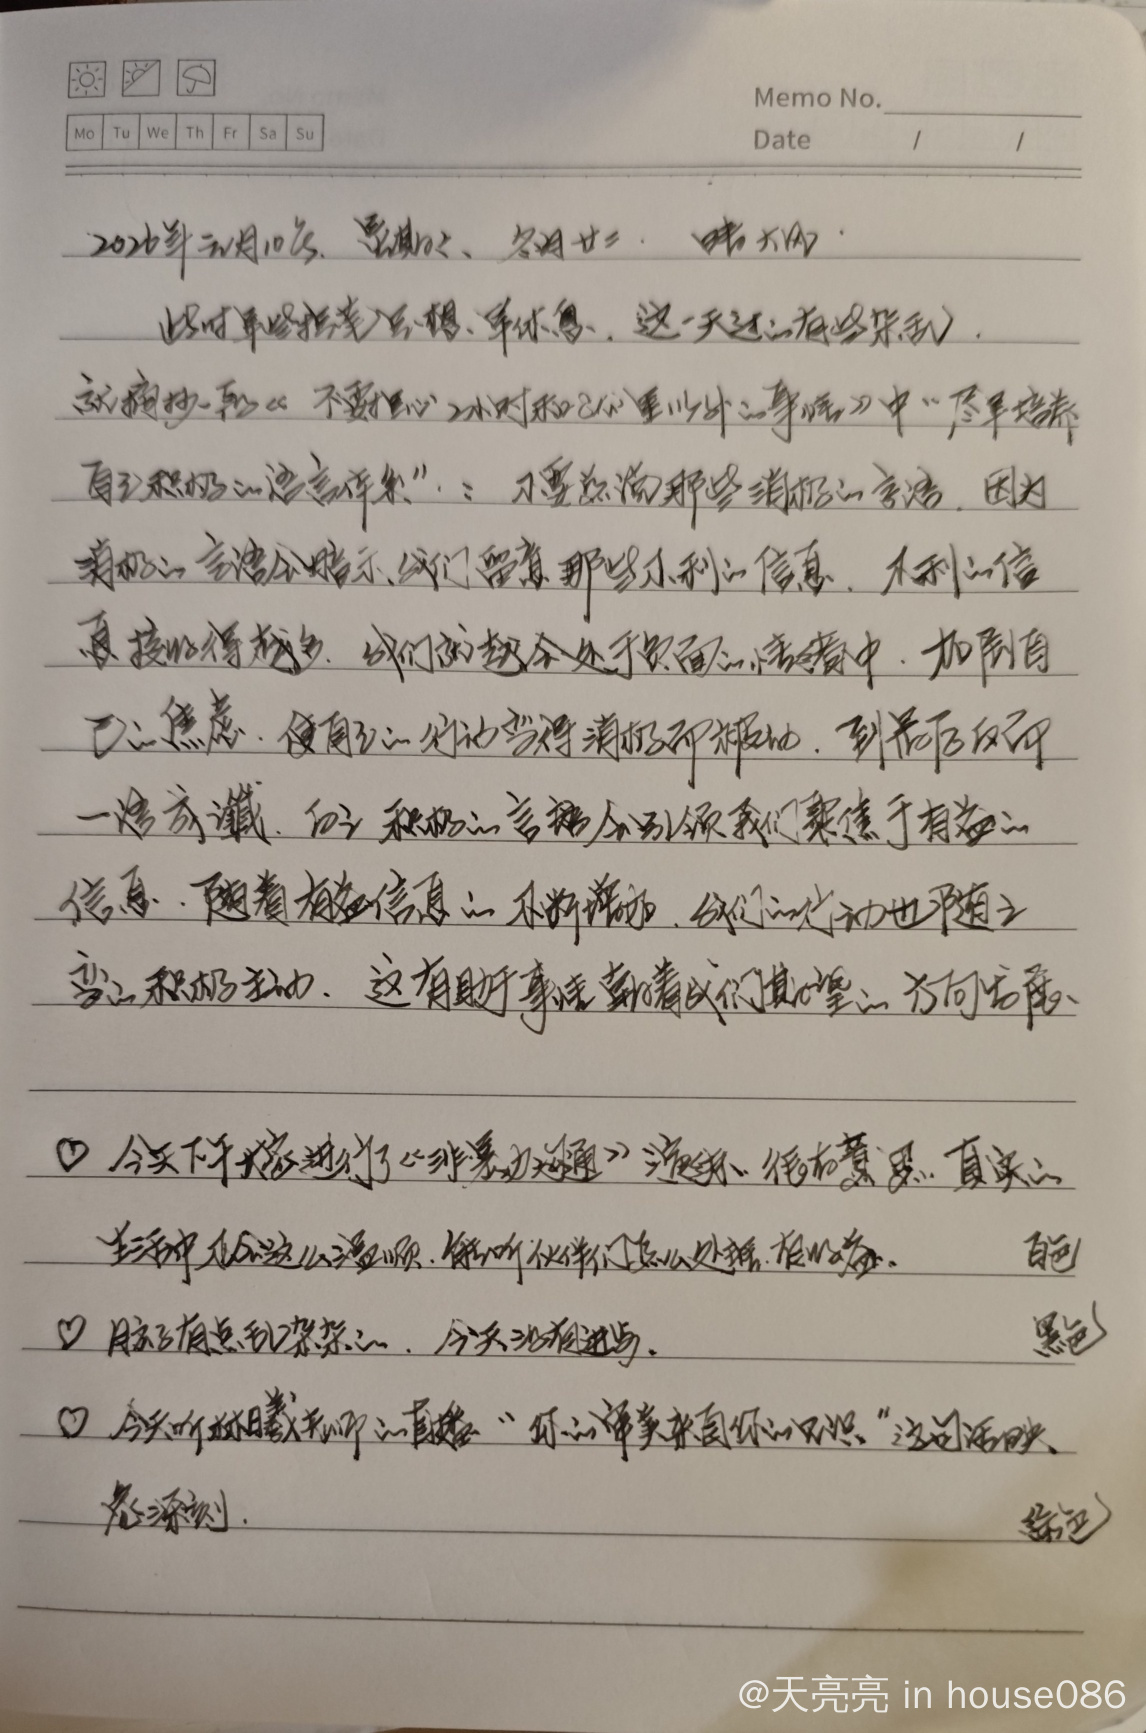 Mo Tu We Th Fr Sa Su
Memo No.
Date / /
2026年元月10号、星期六、冬月廿二. 晴大风.
此时有些疲, 只想早休息. 这一天过的有些杂乱.
就摘抄一段《不要担心2小时和8公里以外的事情》中"尽早培养
自己积极的语言体系": 不要总说那些消极的言语, 因为
消极的言语会暗示我们留意那些不利的信息, 不利的信
息接收得越多, 我们就越会处于负面的情绪中, 加剧自
己的焦虑, 使自己的行动变得消极而被动, 到最后反而
一语成谶. 积极的言语会引领我们聚焦于有益的
信息, 随着有益信息的不断增加, 我们的行动也随之
变的积极主动, 这有助于事情朝着我们期望的方向发展、
♡ 今天下午大家进行了《非暴力沟通》演练、很有意思. 真实的
生活中不会这么温顺, 能听伙伴们怎么处理, 有收益. 白色
♡ 脑子有点乱杂杂的. 今天没有进步. 黑色
♡ 今天听林曦老师的直播 "你的审美来自你的见识" 这句话映
象深刻. 绿色
@天亮亮 in house086